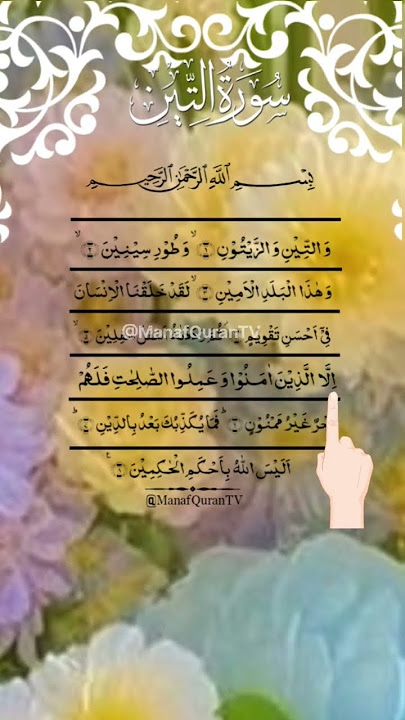 سُورَةُ التِّينِ
بِسْمِ اللَّهِ الرَّحْمَٰنِ الرَّحِيمِ
وَالتِّيْنِ وَالزَّيْتُوْنِ ۙ﴿۱﴾ وَطُوْرِ سِيْنِيْنَ ۙ﴿۲﴾
وَهٰذَا الْبَلَدِ الْاَمِيْنِ ۙ﴿۳﴾ لَقَدْ خَلَقْنَا الْاِنْسَانَ
فِیْۤ اَحْسَنِ تَقْوِيْمٍ
@ManafQuranTV
اِلَّا الَّذِيْنَ اٰمَنُوْا وَعَمِلُوا الصّٰلِحٰتِ فَلَهُمْ
غَيْرُ مَمْنُوْنٍ ؕ﴿۶﴾ فَمَا يُكَذِّبُكَ بَعْدُ بِالدِّيْنِ ؕ﴿۷﴾
اَلَيْسَ اللّٰهُ بِاَحْكَمِ الْحٰكِمِيْنَ ﴿۸﴾
@ManafQuranTV